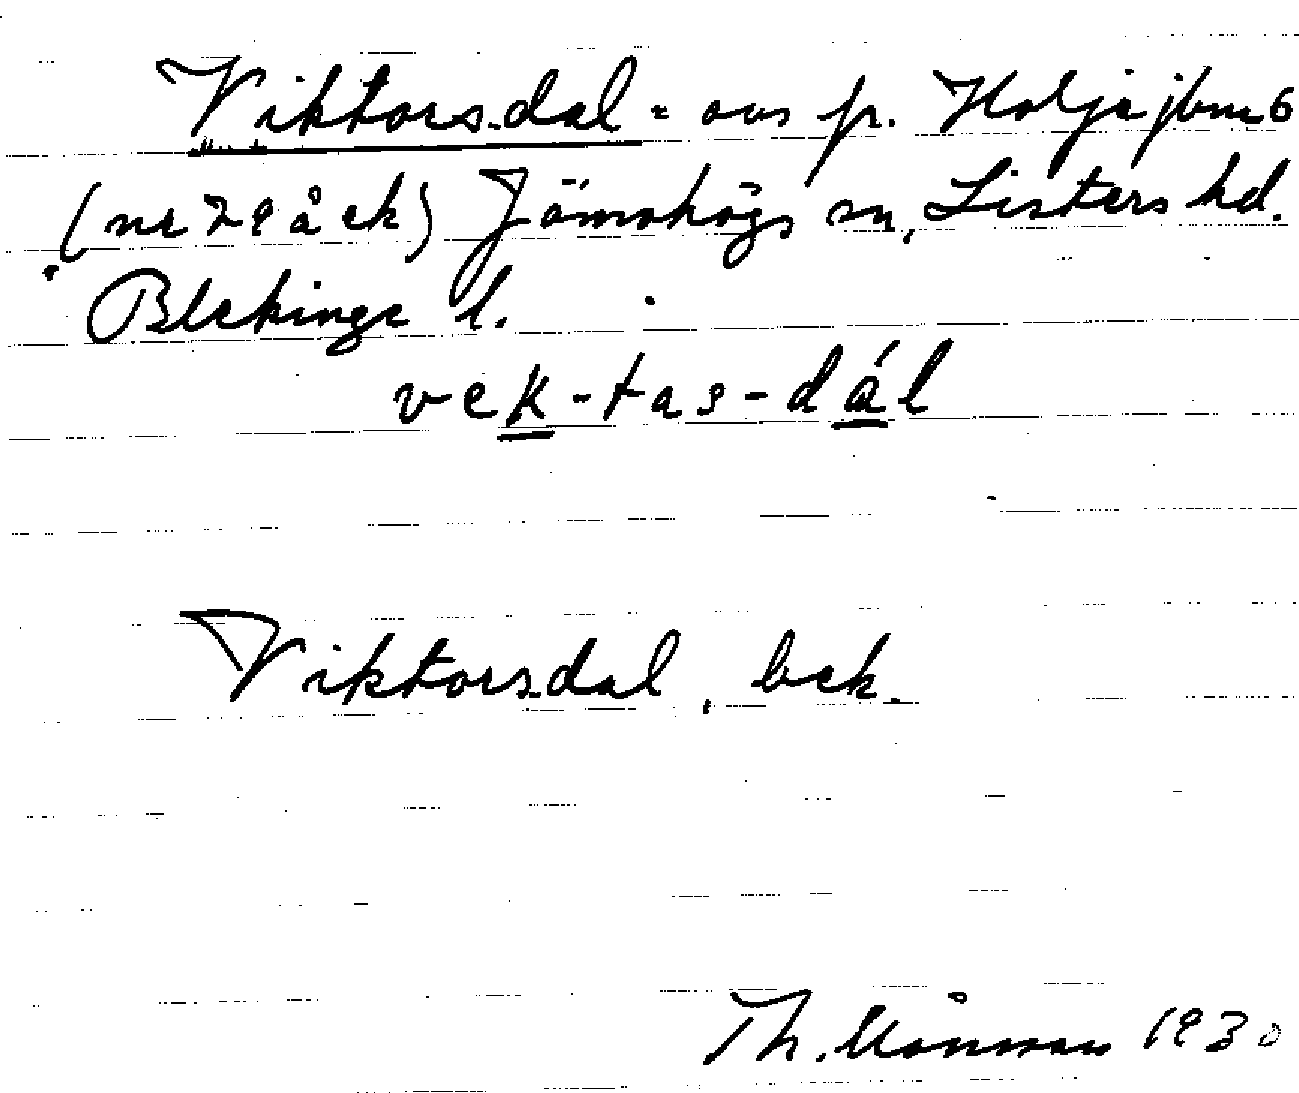 Viktorsdal = avs fr. Holje jbnr 6
(nr 29 å ek) Jämshögs sn, Listers hd.
Blekinge l.
vek-tas-dál
Viktorsdal, bek.
Th. Månsson 1930